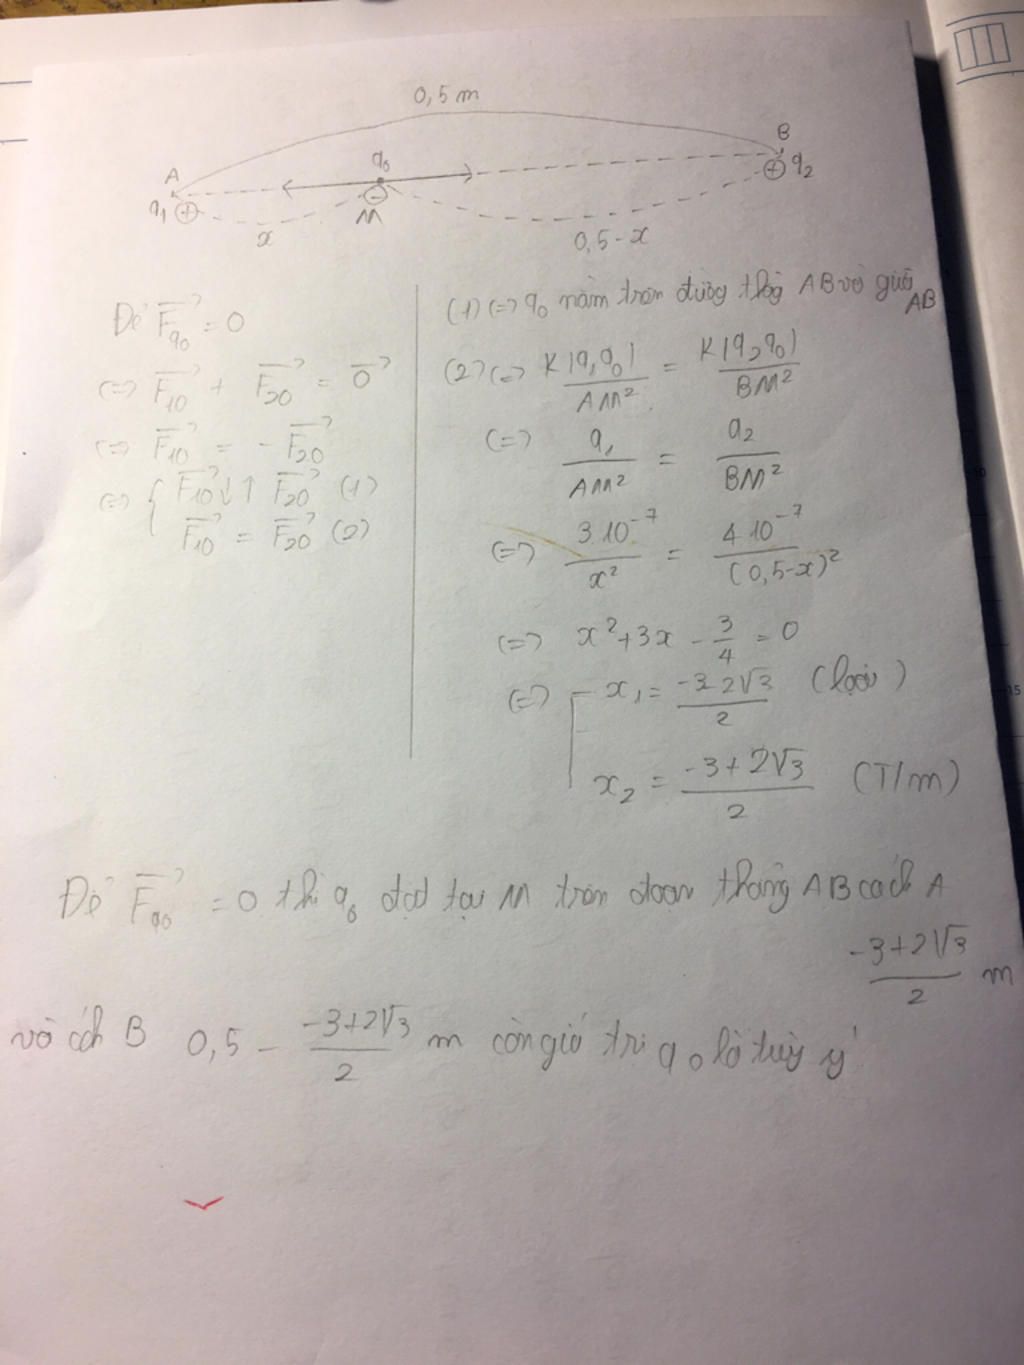 0,5 m
A
q₀
B
q₁ ⊕
⊖
⊕ q₂
M
x
0,5-x
Để F⃗q₀ = 0
(=) F⃗₁₀ + F⃗₂₀ = 0⃗
(=) F⃗₁₀ = - F⃗₂₀
(=) { F⃗₁₀ ↓↑ F⃗₂₀ (1)
F⃗₁₀ = F⃗₂₀ (2)
(1) (=) q₀ nằm trên đường thẳng AB và giữa AB
(2) (=) K|q₁q₀| / AM² = K|q₂q₀| / BM²
(=) q₁ / AM² = q₂ / BM²
(=) 3 10⁻⁷ / x² = 4 10⁻⁷ / (0,5-x)²
(=) x² + 3x - 3/4 = 0
(=) x₁ = -3 - 2√3 / 2 (loại)
x₂ = -3 + 2√3 / 2 (T/m)
Để F⃗q₀ = 0 thì q₀ đặt tại M trên đoạn thẳng AB cách A
-3+2√3 / 2 m
và cách B 0,5 - -3+2√3 / 2 m còn giá trị q₀ là tùy ý